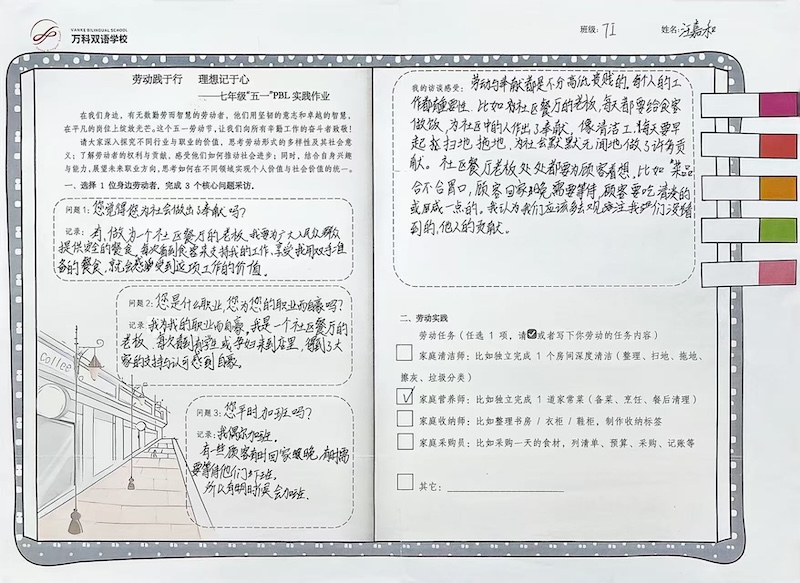 VANKE BILINGUAL SCHOOL
万科双语学校
班级: 7I
姓名: 汪嘉和
劳动践于行 理想记于心
——七年级“五一”PBL 实践作业
在我们身边，有无数勤劳智慧的劳动者，他们用坚韧的意志和卓越的智慧，
在平凡的岗位上绽放光芒。这个五一劳动节，让我们向所有辛勤工作的奋斗者致敬！
请大家深入探究不同行业与职业的价值，思考劳动形式的多样性及其社会意
义；了解劳动者的权利与贡献，感受他们如何推动社会进步；同时，结合自身兴趣
与能力，展望未来职业方向，思考如何在不同领域实现个人价值与社会价值的统一。
一、选择 1 位身边劳动者，完成 3 个核心问题采访.
问题 1: 您觉得您为社会做出了奉献吗？
记录: 有，做为一个社区餐厅的老板，我要为广大人民群众
提供安全的餐食，每次看到食客来支持我的工作，享受我用双手准
备的餐食，就会感受到这项工作的价值.
问题 2: 您是什么职业，您为您的职业而自豪吗？
记录: 我为我的职业而自豪，我是一个社区餐厅的
老板，每次看到 来到店里，得到了大
家的支持与认可感到自豪。
问题 3: 您平时加班吗？
记录: 我偶尔加班.
有一些顾客有时回家很晚，有时需
要等待他们下班.
所以有时候会加班.
Coffee
我的访谈感受: 劳动与奉献都是不分高低贵贱的，每个人的工
作都有重要性，比如为社区餐厅的老板，每天都要给食客
做饭，为社区中的人作出了奉献，像清洁工，每天要早
起来扫地，拖地，为社会默默无闻地做了许多贡
献。社区餐厅老板处处都要为顾客着想，比如“菜品
合不合胃口，顾客回家晚需要等待，顾客要吃清淡的
或 一点的。我认为我们应该多去观 注我们没看
到的，他人的贡献。
二、劳动实践
劳动任务（任选 1 项，请☑或者写下你劳动的任务内容）
家庭清洁师: 比如独立完成 1 个房间深度清洁（整理、扫地、拖地、
擦灰、垃圾分类）
☑ 家庭营养师: 比如独立完成 1 道家常菜（备菜、烹饪、餐后清理）
家庭收纳师: 比如整理书房 / 衣柜 / 鞋柜，制作收纳标签
家庭采购员: 比如采购一天的食材，列清单、预算、采购、记账等
其它: ____________________